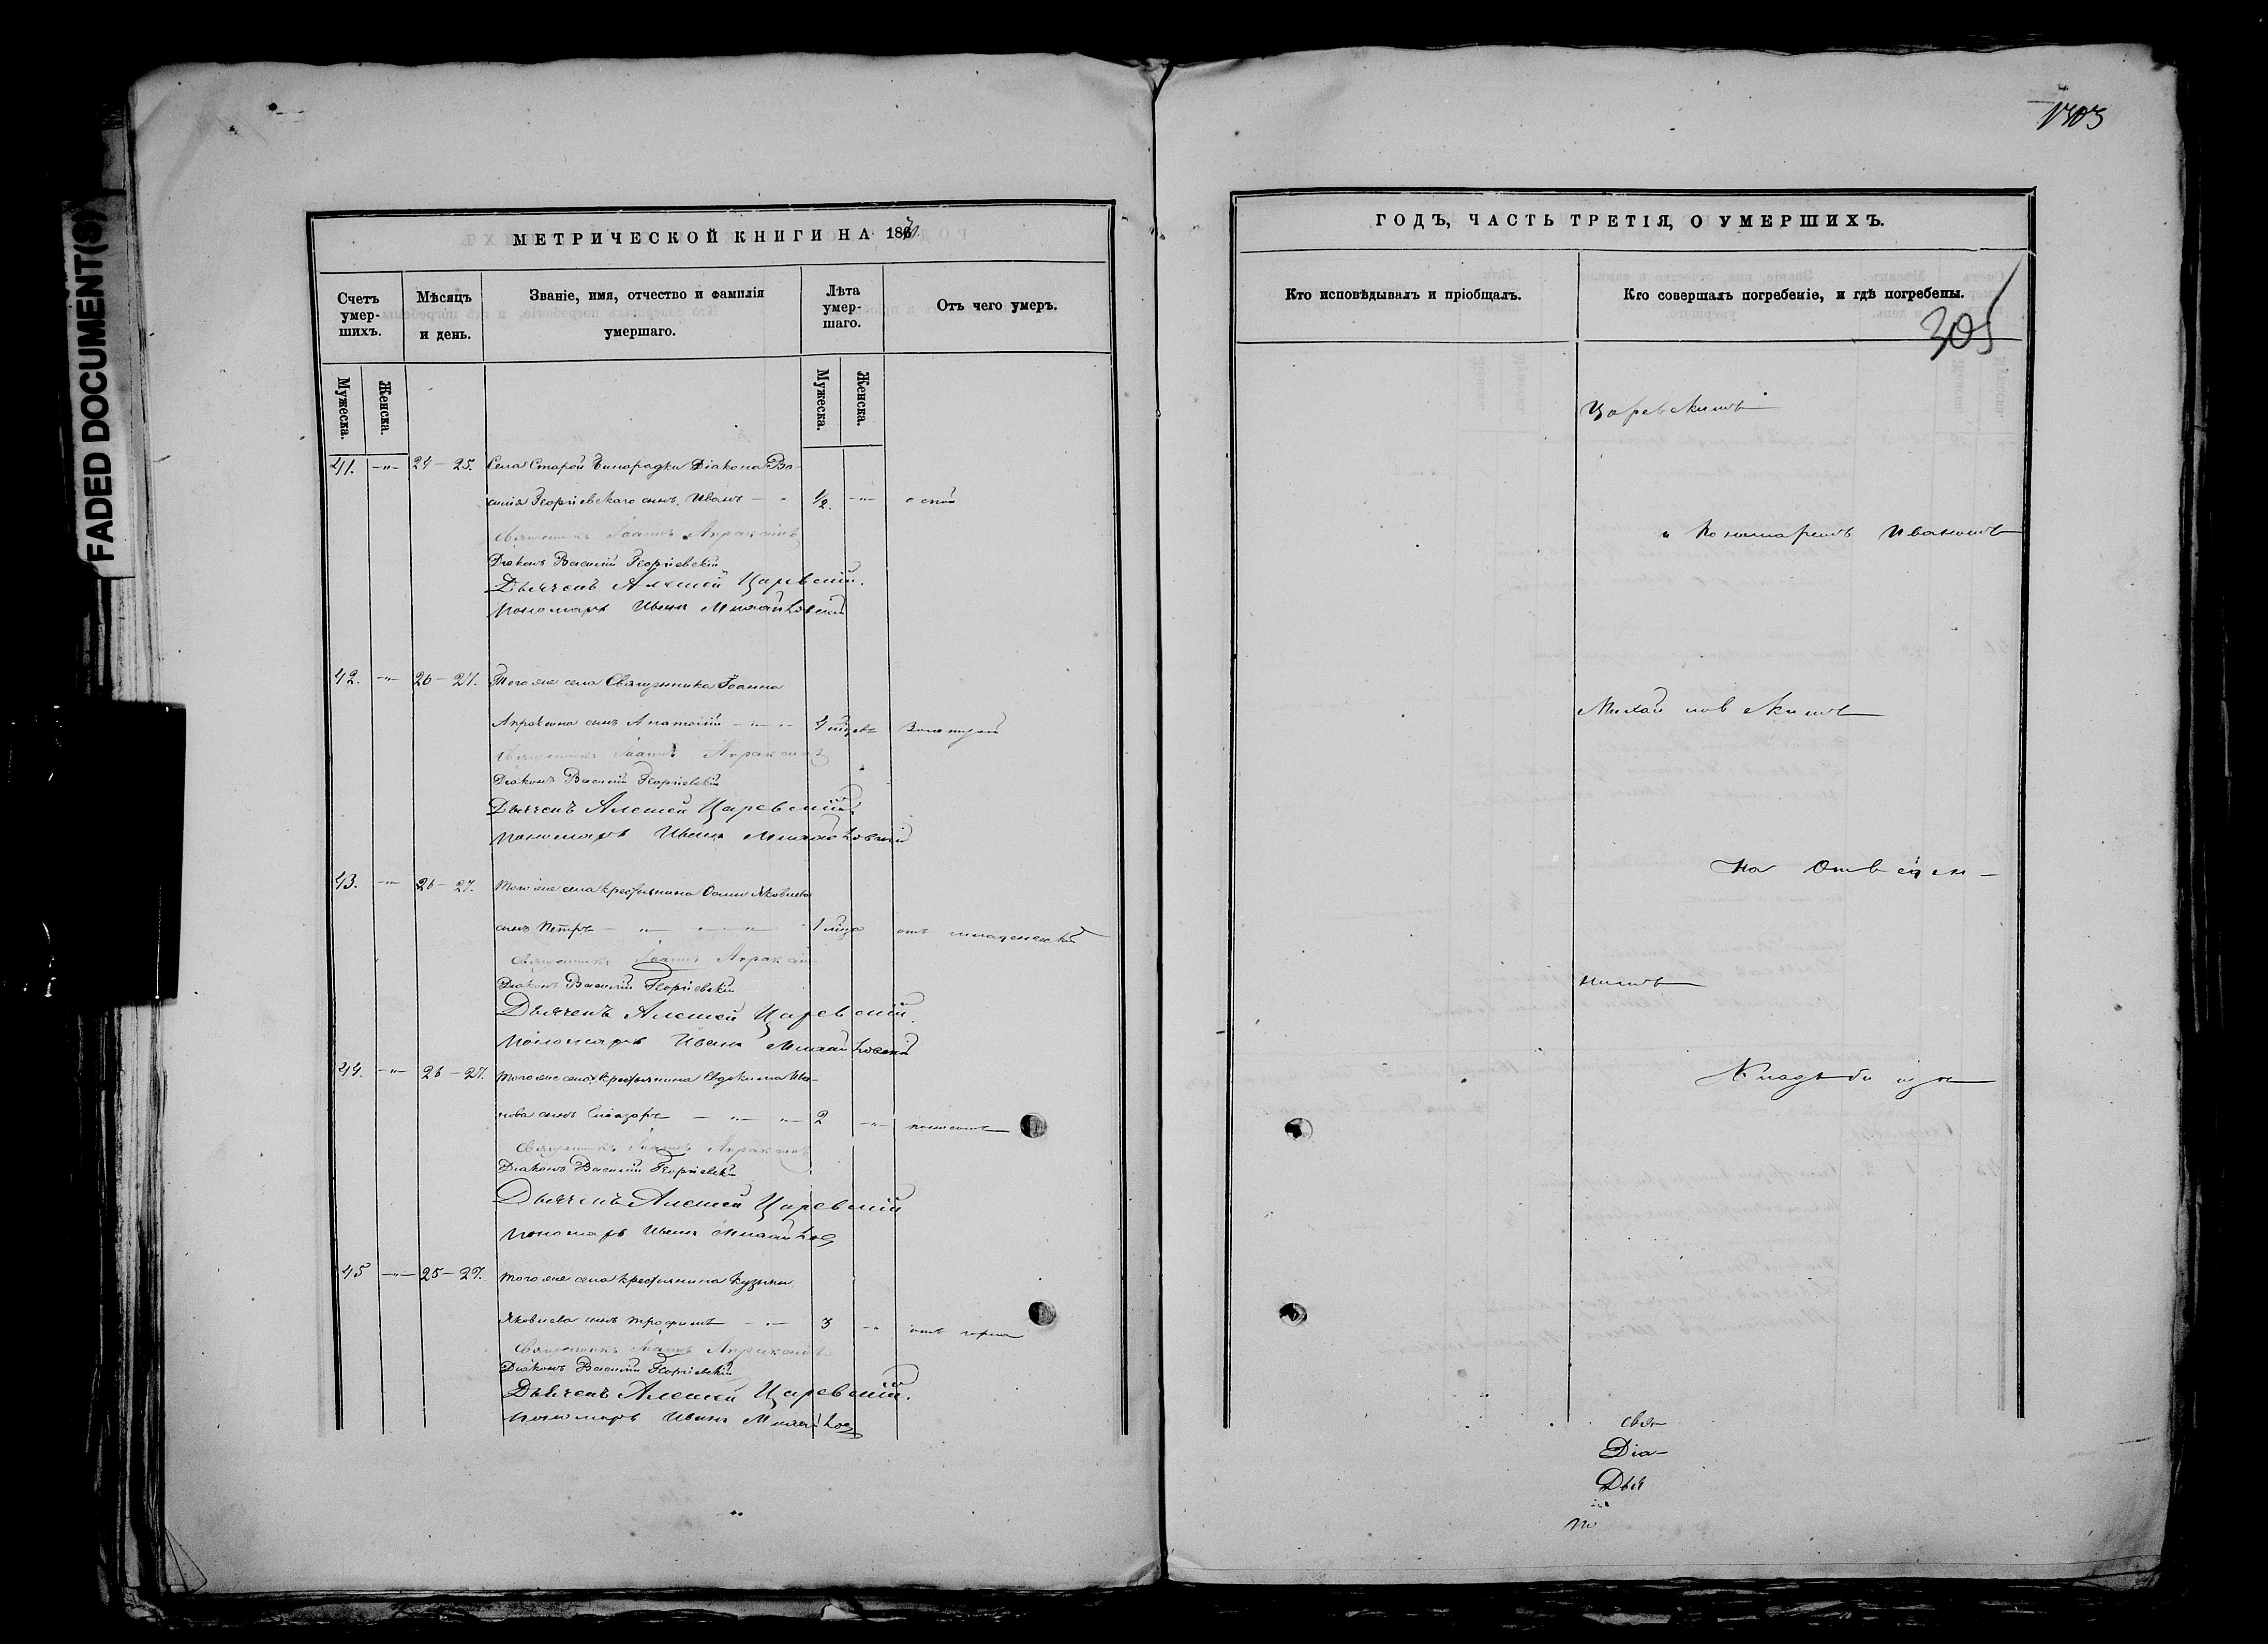 FADED DOCUMENT(S)
МЕТРИЧЕСКОЙ КНИГИ НА 186
Счетъ умер-шихъ.
Мѣсяцъ и день.
Званіе, имя, отчество и фамилія умершаго.
Лѣта умер-шаго.
Отъ чего умеръ.
Мужеска.
Женска.
Мужеска.
Женска.
41. -"- 24 - 25. Села Старой Діакона Ва-
силія Георгіевскаго сынъ Иванъ 1/2. -"- оспы
Священникъ Іоаннъ Апраксинъ
Діаконъ Василій Георгіевскій
Дьячекъ Алексей Царевский.
Пономарь Иванъ Михайловский
42. -"- 26 - 27. Того же села Священника Іоанна
Апраксина сынъ Анатолій
Священникъ Іоаннъ Апраксинъ
Діаконъ Василій Георгіевскій
Дьячекъ Алексей Царевский
Пономарь Иванъ Михайловский
43. -"- 26 - 27. Того же села крестьянина Яковлева
сынъ Петръ 1 отъ младенской
Священникъ Іоаннъ Апраксинъ
Діаконъ Василій Георгіевскій
Дьячекъ Алексей Царевский.
Пономарь Иванъ Михайловский
44. -"- 26 - 27. Того же села крестьянина Евдокима Ива-
нова сынъ 2 -"- поносомъ
Священникъ Іоаннъ Апраксинъ
Діаконъ Василій Георгіевскій
Дьячекъ Алексей Царевский
Пономарь Иванъ Михайлов
45 -"- 25 - 27. Того же села крестьянина Кузьмы
Яковлева сынъ Трофимъ 3 -"- отъ
Священникъ Іоаннъ Апраксинъ
Діаконъ Василій Георгіевскій
Дьячекъ Алексей Царевский.
Пономарь Иванъ Михайлов
ГОДЪ, ЧАСТЬ ТРЕТІЯ, О УМЕРШИХЪ.
Кто исповѣдывалъ и пріобщалъ.
Кто совершалъ погребеніе, и гдѣ погребены.
305
Царевскимъ
и Пономаремъ Иваномъ
Михайловскимъ
На Отведен-
номъ
Кладбище
Свя-
Діа-
Дья
По